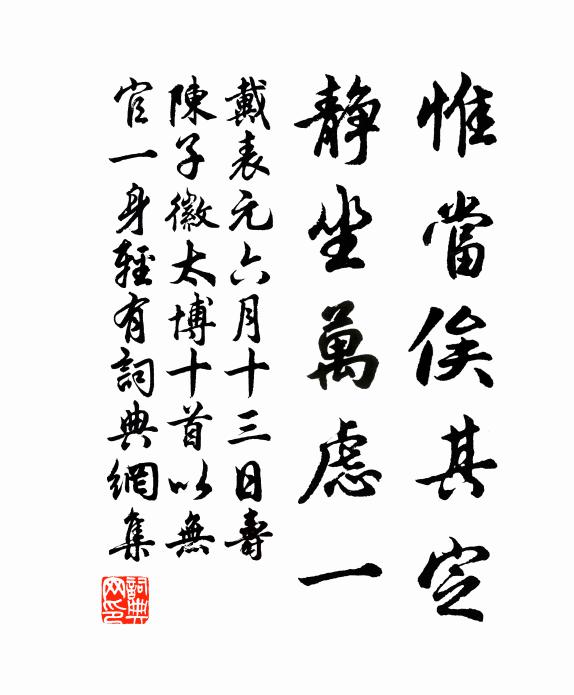 惟當俟其定
靜坐萬慮一
戴表元六月十三日壽
陳子徽太博十首以無
官一身輕有詞典網集
詞典
网印